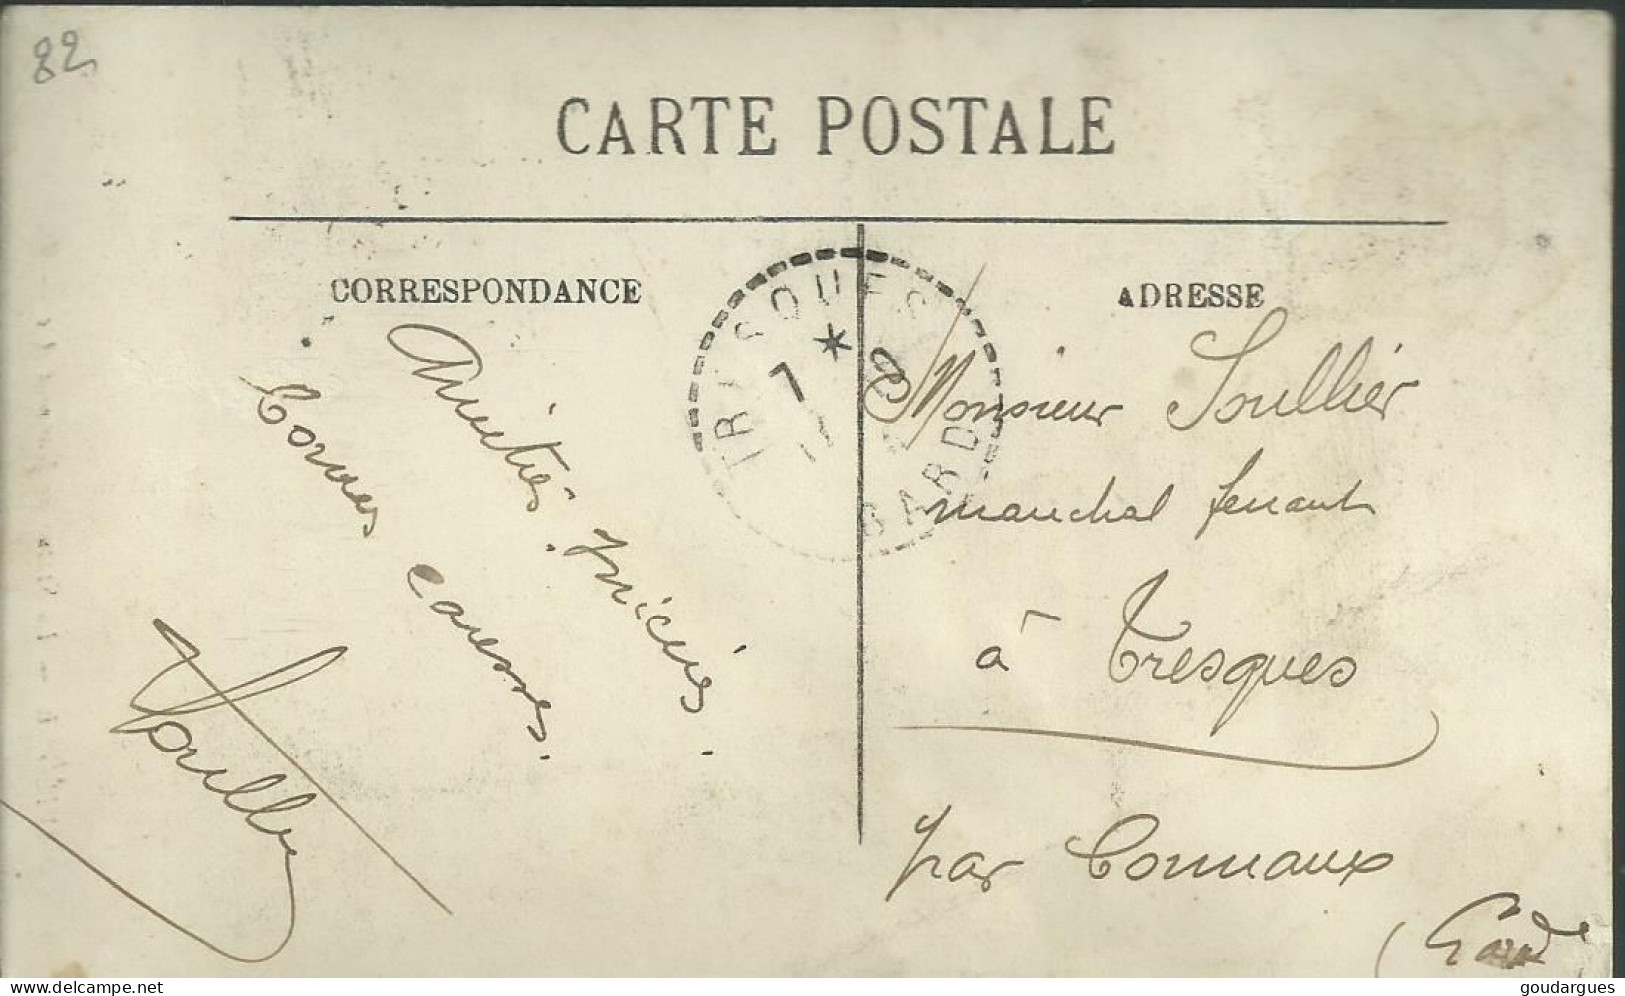 82
CARTE POSTALE
CORRESPONDANCE
ADRESSE
TRESQUES
7 *
GARD
Amitiés sincères.
Bonnes caresses.
Soullier
Monsieur Soullier
marechal ferrant
à Tresques
par Connaux
(Gard
delcampe.net
goudargues